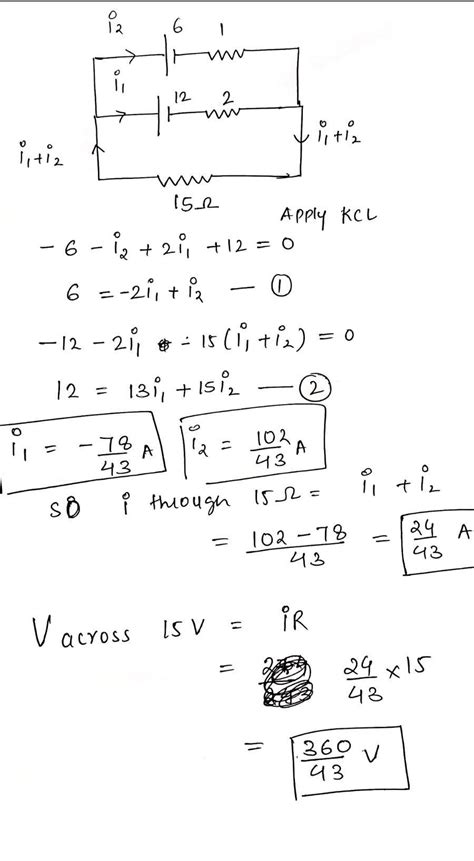 i₂ 6 1
i₁ 12 2
i₁+i₂ i₁+i₂
15Ω
APPly KCL
-6 - i₂ + 2i₁ + 12 = 0
6 = -2i₁ + i₂ — ①
-12 - 2i₁ - 15(i₁+i₂) = 0
12 = 13i₁ + 15i₂ — ②
i₁ = -78/43 A i₂ = 102/43 A
so i through 15Ω = i₁ + i₂
= 102-78/43 = 24/43 A
V across 15V = iR
= 24/43 × 15
= 360/43 V